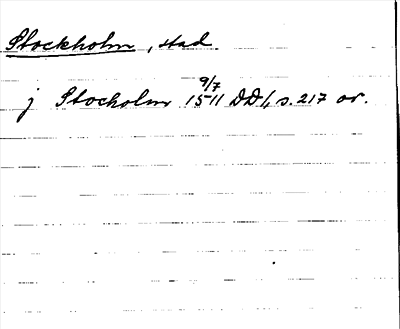 Stockholm, stad.
j Stocholm 9/7 1511 DD1, s. 217 or.